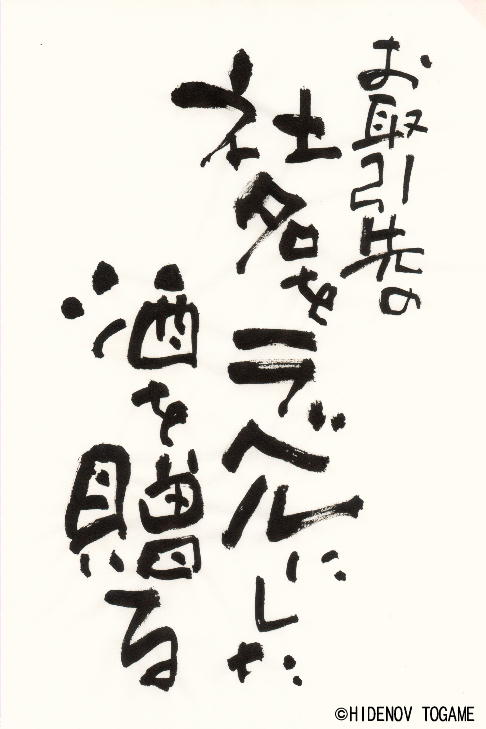 お取引先の
社名をラベルにした
酒を贈る
©HIDENOV TOGAME